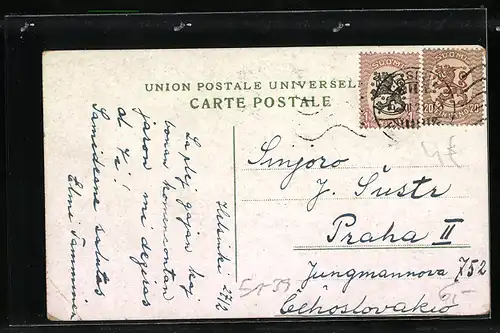 UNION POSTALE UNIVERSELLE
CARTE POSTALE
SUOMI
SUOMI
20
20
Helsinki 27/12
La plej gajan kaj
bonan komencontan
jaron mi deziras
al Vi!
Samideane salutas
Elmi Tamminen
Sinjoro
J. Šustr
Praha II
Jungmannova 752
Ĉeĥoslovakio